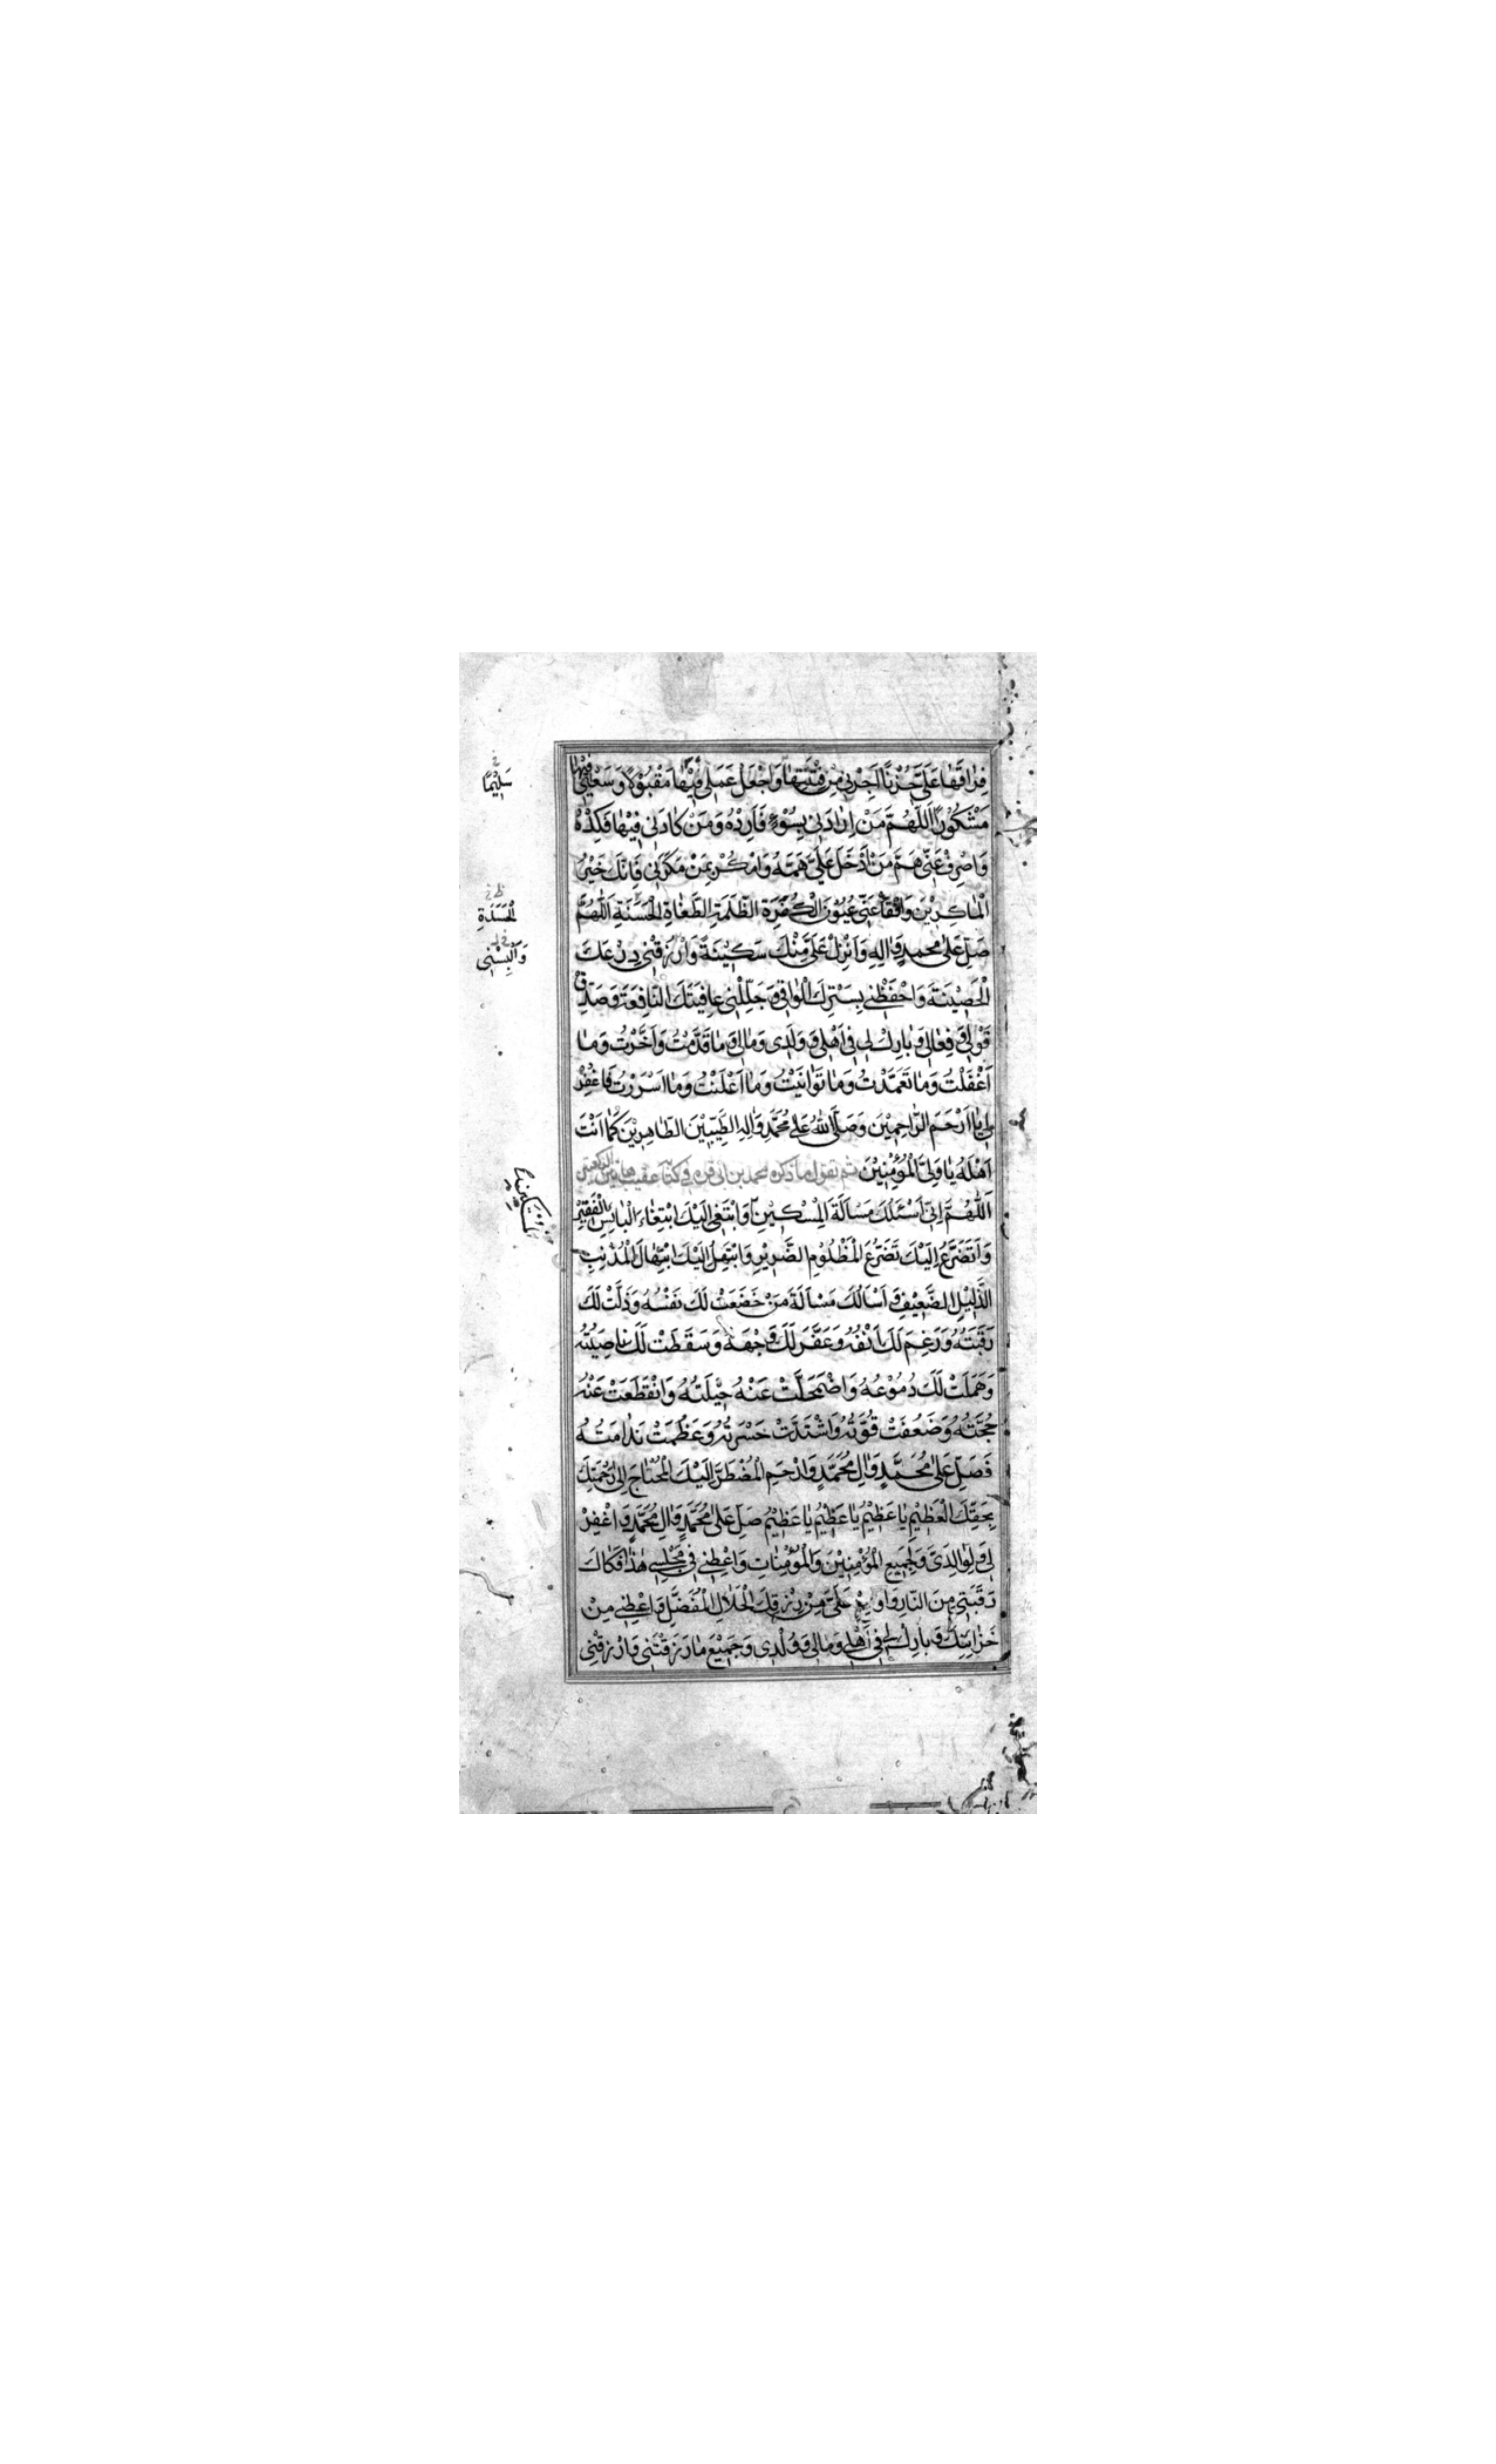 فِرَاقَهَا عَلَيَّ حُزْنًا اَجِرْنِي مِنْ فِتْنَتِهَا وَاجْعَلْ عَمَلِي فِيْهَا مَقْبُوْلًا وَسَعْيِي فِيْهَا
مَشْكُوْرًا اَللّٰهُمَّ مَنْ اَرَادَنِي بِسُوْءٍ فَاَرِدْهُ وَمَنْ كَادَنِي فِيْهَا فَكِدْهُ
وَاصْرِفْ عَنِّي هَمَّ مَنْ اَدْخَلَ عَلَيَّ هَمَّهُ وَامْكُرْ بِمَنْ مَكَرَنِي فَاِنَّكَ خَيْرُ
الْمَاكِرِيْنَ وَافْقَأْ عَنِّي عُيُوْنَ الْكَفَرَةِ الظَّلَمَةِ الطُّغَاةِ الْحَسَنَةِ اَللّٰهُمَّ
صَلِّ عَلٰى مُحَمَّدٍ وَاٰلِهِ وَاَنْزِلْ عَلَيَّ مِنْكَ سَكِيْنَةً وَارْزُقْنِي دِرْعَكَ
الْحَصِيْنَةَ وَاحْفَظْنِي بِسِتْرِكَ الْوَاقِي وَجَلِّلْنِي عَافِيَتَكَ النَّافِعَةَ وَصَدِّقْ
قَوْلِي وَفِعَالِي وَبَارِكْ لِي فِي اَهْلِي وَوَلَدِي وَمَالِي وَمَا قَدَّمْتُ وَاَخَّرْتُ وَمَا
اَغْفَلْتُ وَمَا تَعَمَّدْتُ وَمَا تَوَانَيْتُ وَمَا اَعْلَنْتُ وَمَا اَسْرَرْتُ فَاغْفِرْ
لِي يَا اَرْحَمَ الرَّاحِمِيْنَ وَصَلَّى اللّٰهُ عَلٰى مُحَمَّدٍ وَاٰلِهِ الطَّيِّبِيْنَ الطَّاهِرِيْنَ كَمَا اَنْتَ
اَهْلُهُ يَا وَلِيَّ الْمُؤْمِنِيْنَ ثم تقول ما ذكره محمد بن ابي قره في كتابه عقيب هاتين الركعتين
اَللّٰهُمَّ اِنِّي اَسْئَلُكَ مَسْأَلَةَ الْمِسْكِيْنِ وَابْتَغِي اِلَيْكَ ابْتِغَاءَ الْبَائِسِ الْفَقِيْرِ
وَاَتَضَرَّعُ اِلَيْكَ تَضَرُّعَ الْمَظْلُوْمِ الضَّرِيْرِ وَابْتَهِلُ اِلَيْكَ ابْتِهَالَ الْمُذْنِبِ
الذَّلِيْلِ الضَّعِيْفِ وَاَسْأَلُكَ مَسْأَلَةَ مَنْ خَضَعَتْ لَكَ نَفْسُهُ وَذَلَّتْ لَكَ
رَقَبَتُهُ وَرَغِمَ لَكَ اَنْفُهُ وَعَفَّرَ لَكَ وَجْهَهُ وَسَقَطَتْ لَكَ نَاصِيَتُهُ
وَهَمَلَتْ لَكَ دُمُوْعُهُ وَاضْمَحَلَّتْ عَنْهُ حِيْلَتُهُ وَانْقَطَعَتْ عَنْهُ
حُجَّتُهُ وَضَعُفَتْ قُوَّتُهُ وَاشْتَدَّتْ حَسْرَتُهُ وَعَظُمَتْ نَدَامَتُهُ
فَصَلِّ عَلٰى مُحَمَّدٍ وَاٰلِ مُحَمَّدٍ وَارْحَمِ الْمُضْطَرَّ اِلَيْكَ الْمُحْتَاجَ اِلٰى رَحْمَتِكَ
بِحَقِّكَ الْعَظِيْمِ يَا عَظِيْمُ يَا عَظِيْمُ يَا عَظِيْمُ صَلِّ عَلٰى مُحَمَّدٍ وَاٰلِ مُحَمَّدٍ وَاغْفِرْ
لِي وَلِوَالِدَيَّ وَلِجَمِيْعِ الْمُؤْمِنِيْنَ وَالْمُؤْمِنَاتِ وَاَعْطِنِي فِي مَجْلِسِي هٰذَا فَكَاكَ
رَقَبَتِي مِنَ النَّارِ وَاَوْسِعْ عَلَيَّ مِنْ رِزْقِكَ الْحَلَالِ الْمُفَضَّلِ وَاَعْطِنِي مِنْ
خَزَائِنِكَ وَبَارِكْ لِي فِي اَهْلِي وَمَالِي وَوُلْدِي وَجَمِيْعِ مَا رَزَقْتَنِي وَارْزُقْنِي
سَلِيْمًا
الْحَسَدَةِ
وَاَلْبِسْنِي
الْمُسْتَكِيْنِ